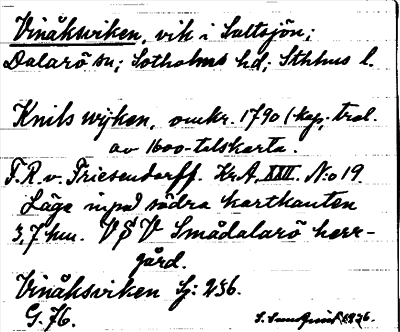 Vinåksviken, vik i Saltsjön;
Dalarö sn; Sotholms hd; Sthlms l.
Knils wijken, omkr. 1790 (kop. trol.
av 1600-talskarta.
F.R. v. Friesendorff. Kr.A, XXIII. No 19.
Läge invid södra kartkanten
3,7 km. VSV Smådalarö herr-
gård.
Vinåksviken Sj: 236.
G. 76.